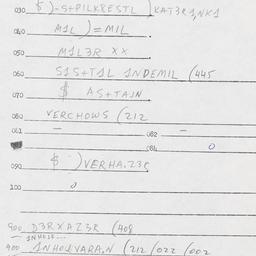 030 $ )-S+PILKRESTL )KAT3R1NK1
040 M1L )=MIL
050 M1L3R XX
060 S1S+T1L 1NDEMIL (445
070 $ AS+TAJN
080 VERCHOWS (212
081 — 082 —
084 0
090 $ )VERHA.Z3R
100 0
900 D3RXAZ3R (408
900 1NHO1VARA.N (212/022/002